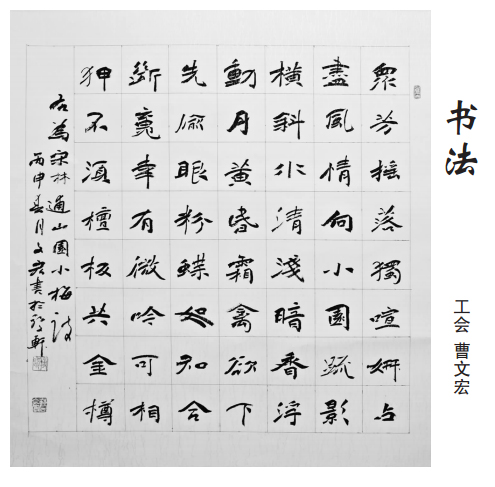 书法
工会 曹文宏
衆芳摇落獨喧妍占
盡風情向小園疏影
橫斜水清淺暗香浮
動月黃昏霜禽欲下
先偷眼粉蝶如知合
斷魂幸有微吟可相
狎不須檀板共金樽
右為宋林逋山園小梅詩
丙申春月文宏書於軒